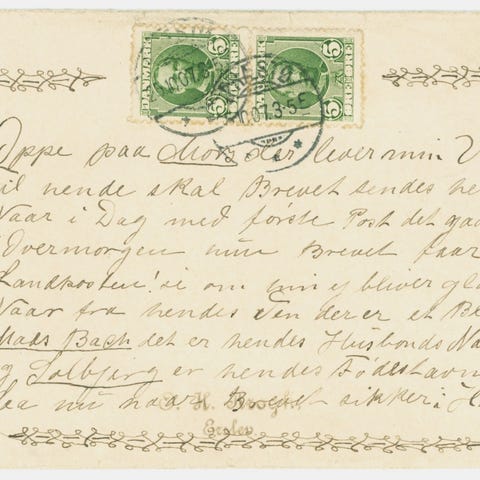 DANMARK 5 ØRE
DANMARK 5 ØRE
Oppe paa Mors der lever min V
til hende skal Brevet sendes he
Naar i Dag med første Post det gaa
i Overmorgen min Brevet faar
Landposten! si om min ej bliver gla
Naar fra hendes Ven der er et Br
Mads Bach det er hendes Husbonds Na
og Solbjerg er hendes Fødestavn
saa nu naar Brevet sikker i H
H. Krogh
Erslev